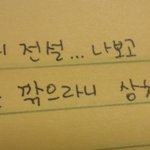 전설... 나보고
깎으라니